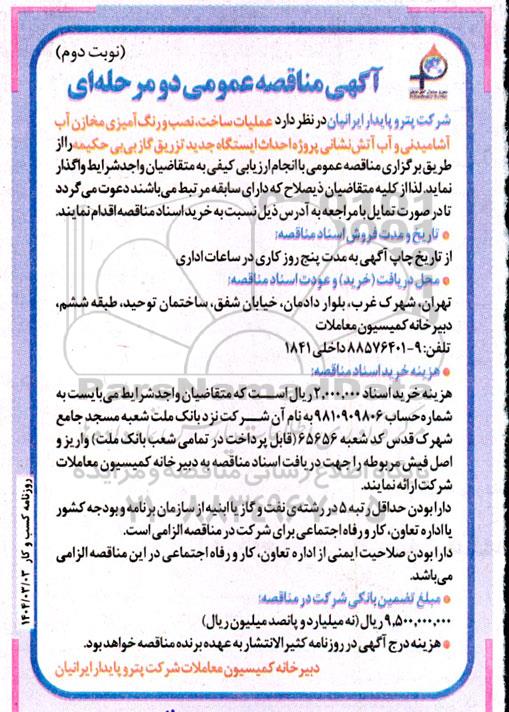 (نوبت دوم)
آگهی مناقصه عمومی دو مرحله‌ای
شرکت پترو پایدار ایرانیان در نظر دارد عملیات ساخت، نصب و رنگ آمیزی مخازن آب
آشامیدنی و آب آتش نشانی پروژه احداث ایستگاه جدید تزریق گاز بی بی حکیمه را از
طریق برگزاری مناقصه عمومی با انجام ارزیابی کیفی به متقاضیان واجد شرایط واگذار
نماید. لذا از کلیه متقاضیان ذیصلاح که دارای سابقه مرتبط می‌باشند دعوت می‌گردد
تا در صورت تمایل با مراجعه به آدرس ذیل نسبت به خرید اسناد مناقصه اقدام نمایند.
تاریخ و مدت فروش اسناد مناقصه:
از تاریخ چاپ آگهی به مدت پنج روز کاری در ساعات اداری
محل دریافت (خرید) و عودت اسناد مناقصه:
تهران، شهرک غرب، بلوار دادمان، خیابان شفق، ساختمان توحید، طبقه ششم،
دبیرخانه کمیسیون معاملات
تلفن: ۹-۸۸۵۷۶۴۰۱ داخلی ۱۸۴۱
هزینه خرید اسناد مناقصه:
هزینه خرید اسناد ۲,۰۰۰,۰۰۰ ریال است که متقاضیان واجد شرایط می‌بایست به
شماره حساب ۹۸۱۰۹۰۹۸۰۶ به نام آن شرکت نزد بانک ملت شعبه مسجد جامع
شهرک قدس کد شعبه ۶۵۶۵۶ (قابل پرداخت در تمامی شعب بانک ملت) واریز و
اصل فیش مربوطه را جهت دریافت اسناد مناقصه به دبیرخانه کمیسیون معاملات
شرکت ارائه نمایند.
دارا بودن حداقل رتبه ۵ در رشته‌ی نفت و گاز یا ابنیه از سازمان برنامه و بودجه کشور
یا اداره تعاون، کار و رفاه اجتماعی برای شرکت در مناقصه الزامی است.
دارا بودن صلاحیت ایمنی از اداره تعاون، کار و رفاه اجتماعی در این مناقصه الزامی
می‌باشد.
مبلغ تضمین بانکی شرکت در مناقصه:
۹,۵۰۰,۰۰۰,۰۰۰ ریال (نه میلیارد و پانصد میلیون ریال)
هزینه درج آگهی در روزنامه کثیر الانتشار به عهده برنده مناقصه خواهد بود.
دبیرخانه کمیسیون معاملات شرکت پترو پایدار ایرانیان
روزنامه کسب و کار ۱۴۰۴/۰۳/۰۳
ParsNamadData